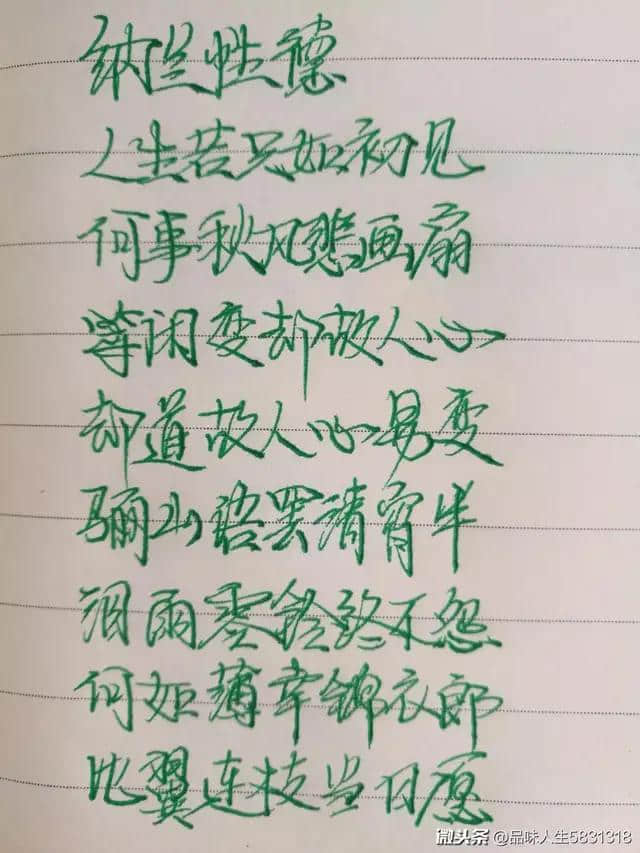 纳兰性德
人生若只如初见
何事秋风悲画扇
等闲变却故人心
却道故人心易变
骊山语罢清宵半
泪雨零铃终不怨
何如薄幸锦衣郎
比翼连枝当日愿
微头条 @品味人生5831318